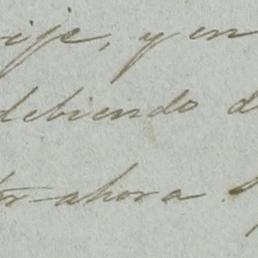 ije, y en
debiendo d
or ahora